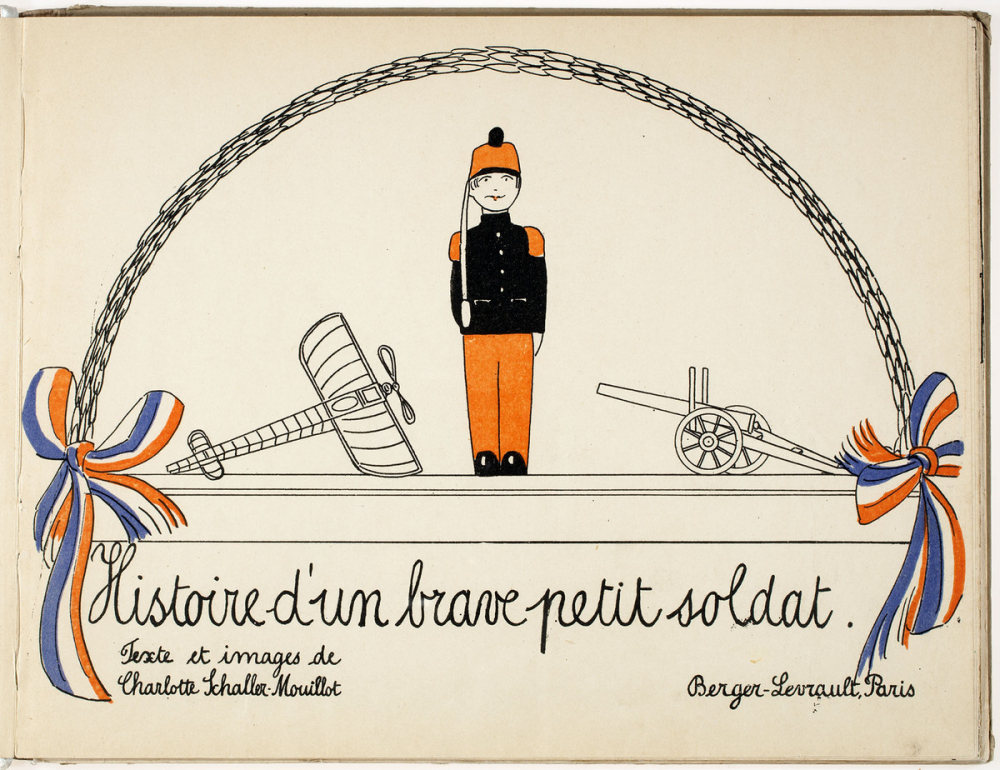 Histoire d'un brave petit soldat.
Texte et images de
Charlotte Schaller-Mouillot
Berger-Levrault, Paris